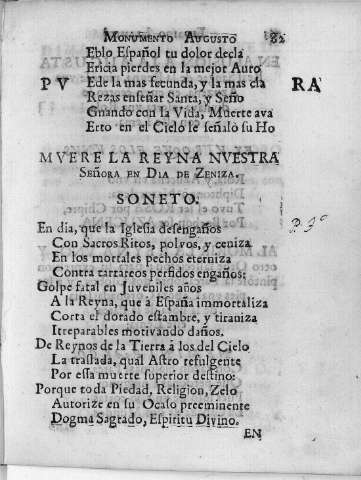 MONUMENTO AUGUSTO 82
Eblo Español tu dolor decla
Ericia pierdes en la mejor Auro
PV Ede la mas fecunda, y la mas cla RA
Rezas enseñar Santa, y Seño
Gnando con la Vida, Muerte ava
Erto en el Cielo le señalo su Ho
MVERE LA REYNA NVESTRA
SEÑORA EN DIA DE ZENIZA.
SONETO.
En dia, que la Iglesia desengaños
Con Sacros Ritos, polvos, y ceniza
En los mortales pechos eterniza
Contra tartareos perfidos engaños:
Golpe fatal en Juveniles años
A la Reyna, que à España immortaliza
Corta el dorado estambre, y tiraniza
Irreparables motivando daños.
De Reynos de la Tierra à los del Cielo
La traslada, qual Astro refulgente
Por essa muerte superior destino:
Porque toda Piedad, Religion, Zelo
Autorize en su Ocaso preeminente
Dogma Sagrado, Espiritu Divino.
EN